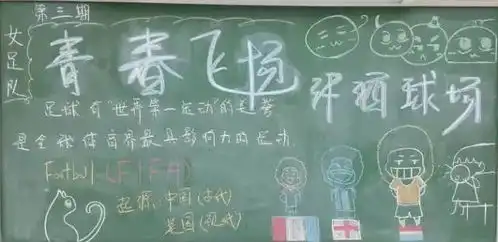 第三期
女足队
青春飞扬
汗洒球场
足球有"世界第一运动"的美誉
是全球体育界最具影响力的运动
Football FIFA
起源:中国(古代)
英国(现代)